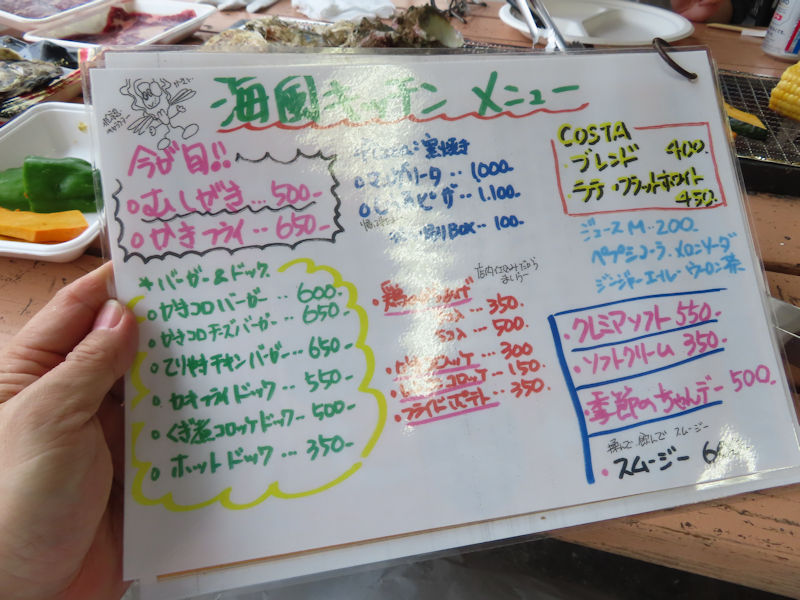 海風キッチン メニュー
今が旬!!
むしがき...500-
かきフライ...650-
窯焼き
マルゲリータ...1000-
1.100-
BOX...100-
COSTA
ブレンド 400.
ラテ・フラットホワイト
450.
ジュース M.200.
ペプシコーラ メロンソーダ
ジンジャーエール ウーロン茶
*バーガー&ドック
かきコロバーガー...600-
かきコロチーズバーガー...650-
てりやきチキンバーガー...650-
カキフライドック...550-
くぎ煮コロッケドック...500-
ホットドック...350-
鶏の
...350-
...500-
...300
コロッケ...150-
フライドポテト...350-
クレミアソフト 550-
ソフトクリーム 350-
季節のちゃんデー 500.
揉んで 飲んで スムージー
スムージー